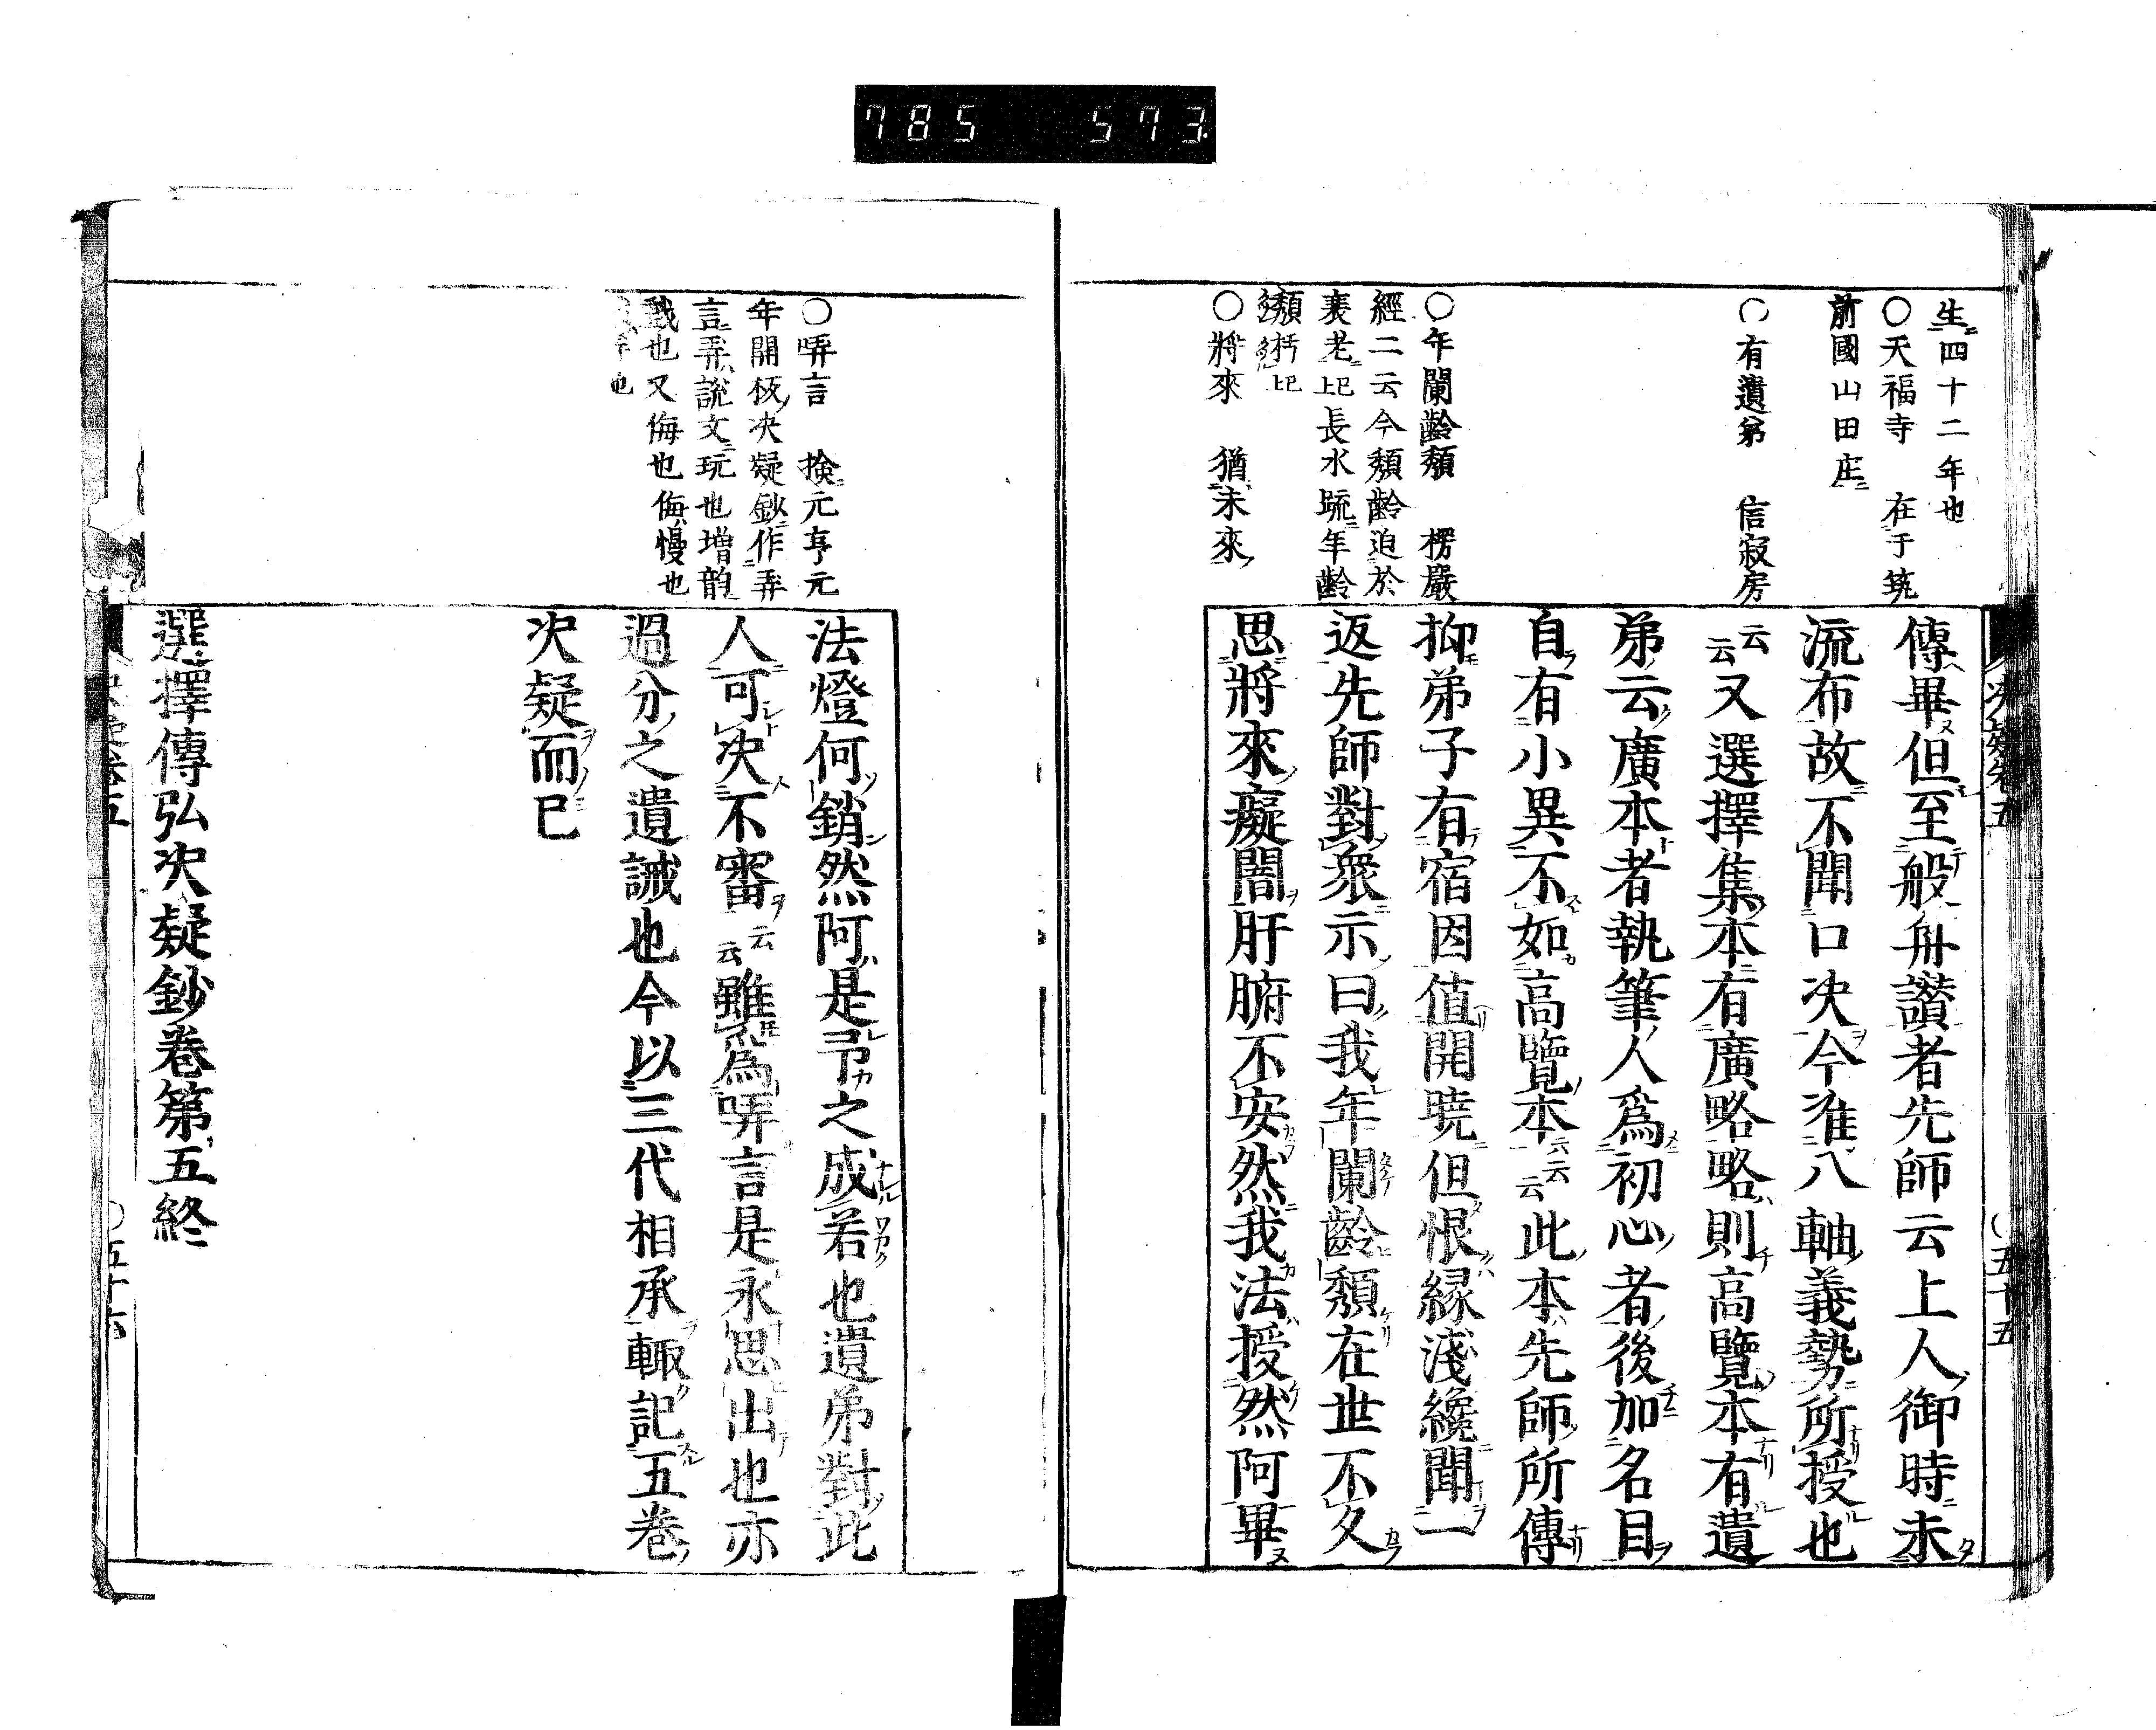 785 573.
生四十二年也
○天福寺 在于筑
前國山田庄
○有遺弟 信寂房
○年闌齡頽 楞嚴
經二云今頽齡迫於
衰老上巳長水疏年齡
頽朽上巳
○將來 猶未來
决疑卷五
傳畢但至般舟讃者先師云上人御時未
流布故不聞口决今准八軸義勢所授也
云云又選擇集本有廣略略則高覽本有遺
弟云廣本者執筆人爲初心者後加名目
自有小異不如高覽本云云此本先師所傳
抑弟子有宿因値開曉但恨縁淺纔聞一
返先師對衆示曰我年闌齡頽在世不久
思將來癡闇肝腑不安然我法授然阿畢
五十五
○哢言 撿元亨元
年開板决疑鈔作弄
言弄說文玩也増韵
戲也又侮也侮慢也
也
法燈何銷然阿是予之成若也遺弟對此
人可决不審云云雖爲哢言是永思出也亦
過分之遺誡也今以三代相承輙記五卷
决疑而已
選擇傳弘决疑鈔卷第五終
卷五
五十六